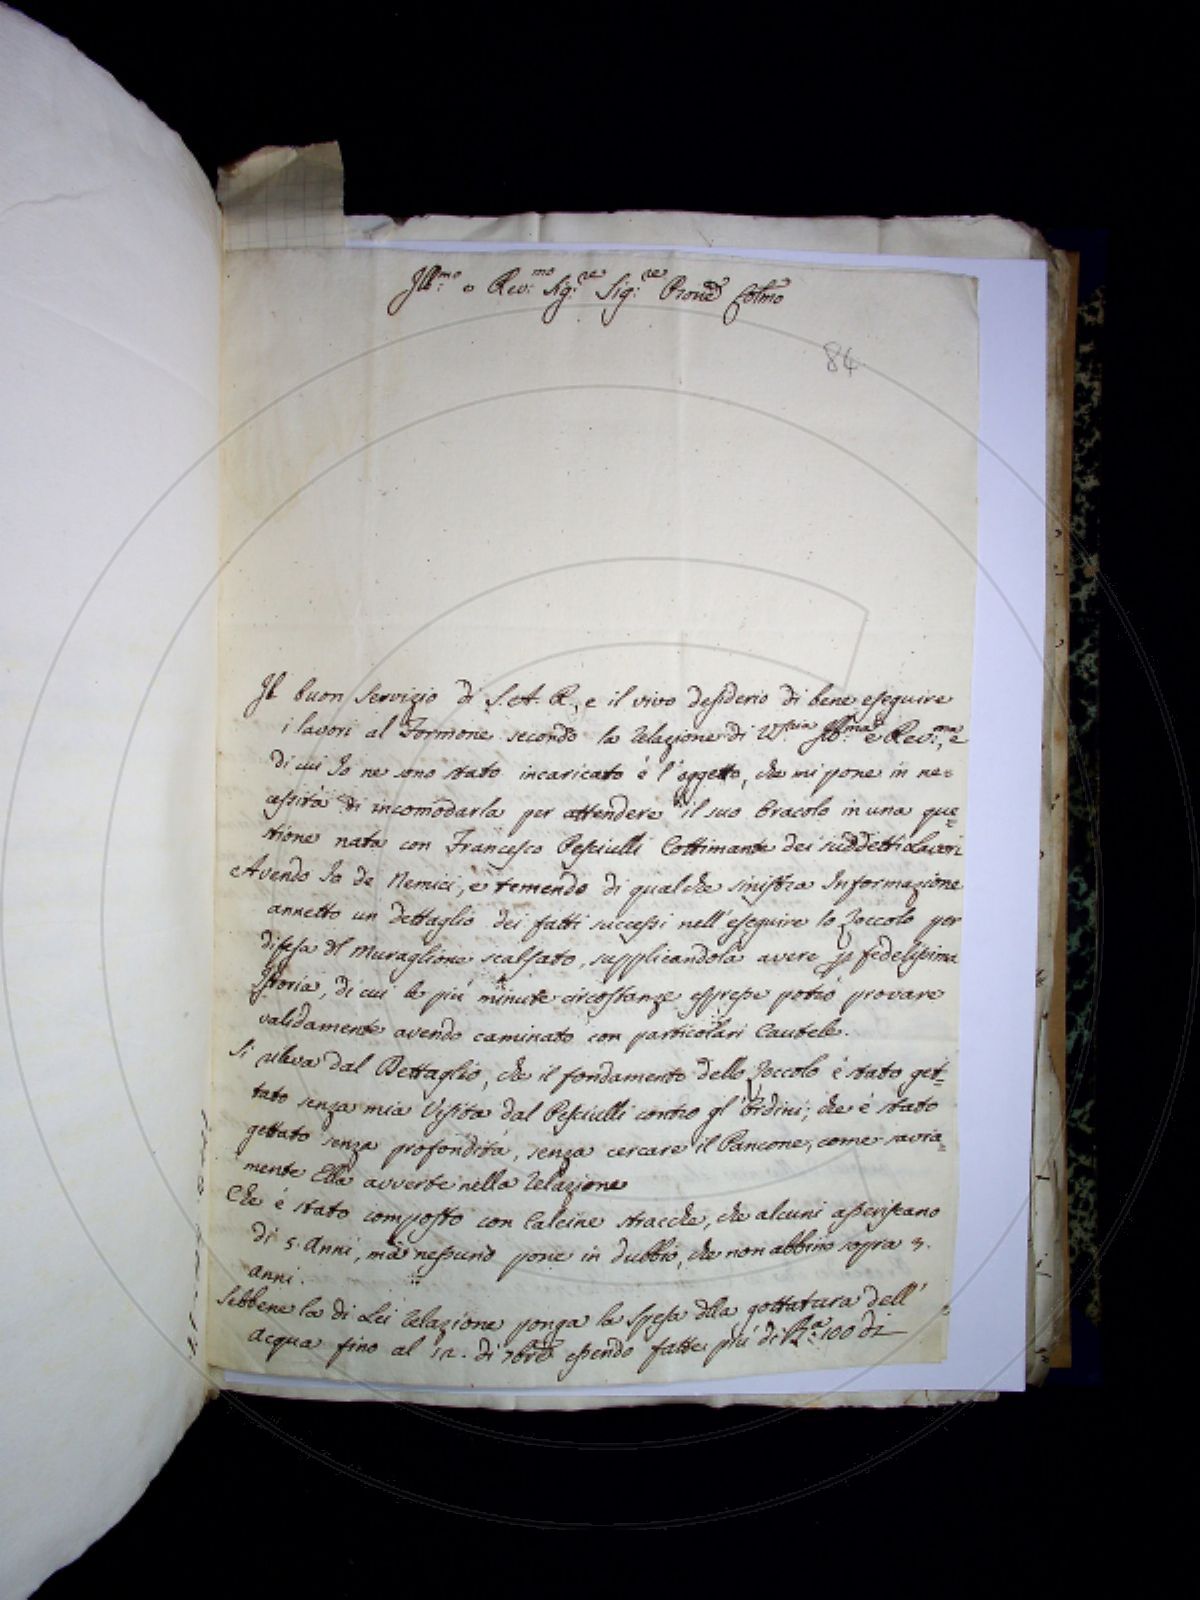 Ill:mo e Rev:mo Sig:re Sig:re Prone Colmo
84
Il buon servizio di S. A. R., e il vivo desiderio di bene eseguire
i lavori al Formone secondo la relazione di V.sria Ill:ma e Rev:ma, e
di cui Io ne sono stato incaricato è l'oggetto, che mi pone in ne=
cessità di incomodarla per attendere il suo Oracolo in una que=
stione nata con Francesco Pesciulli Cottimante dei suddetti Lavori
Avendo Io de Nemici, e temendo di qualche sinistra Informazione
annetto un dettaglio dei fatti successi nell'eseguire lo Zoccolo per
difesa del Muraglione scalsato, supplicandola avere p fedelissima
Istoria, di cui le più minute circostanze espresse potrò provare
validamente avendo caminato con particolari Cautele.
Si rileva dal Dettaglio, che il fondamento dello Zoccolo è stato get=
tato senza mia Visita dal Pesciulli contro gl'Ordini; che è stato
gettato senza profondità, senza cercare il Pancone, come savia=
mente Ella avverte nella relazione
Che è stato composto con Calcine stracche, che alcuni asseriscano
di 5. Anni, mà nessuno pone in dubbio, che non abbino sopra 3.
anni.
Sebbene la di Lei relazione ponga la spesa della gottatura dell'
acqua fino al 12. di 7bre essendo fatte più di 100 di